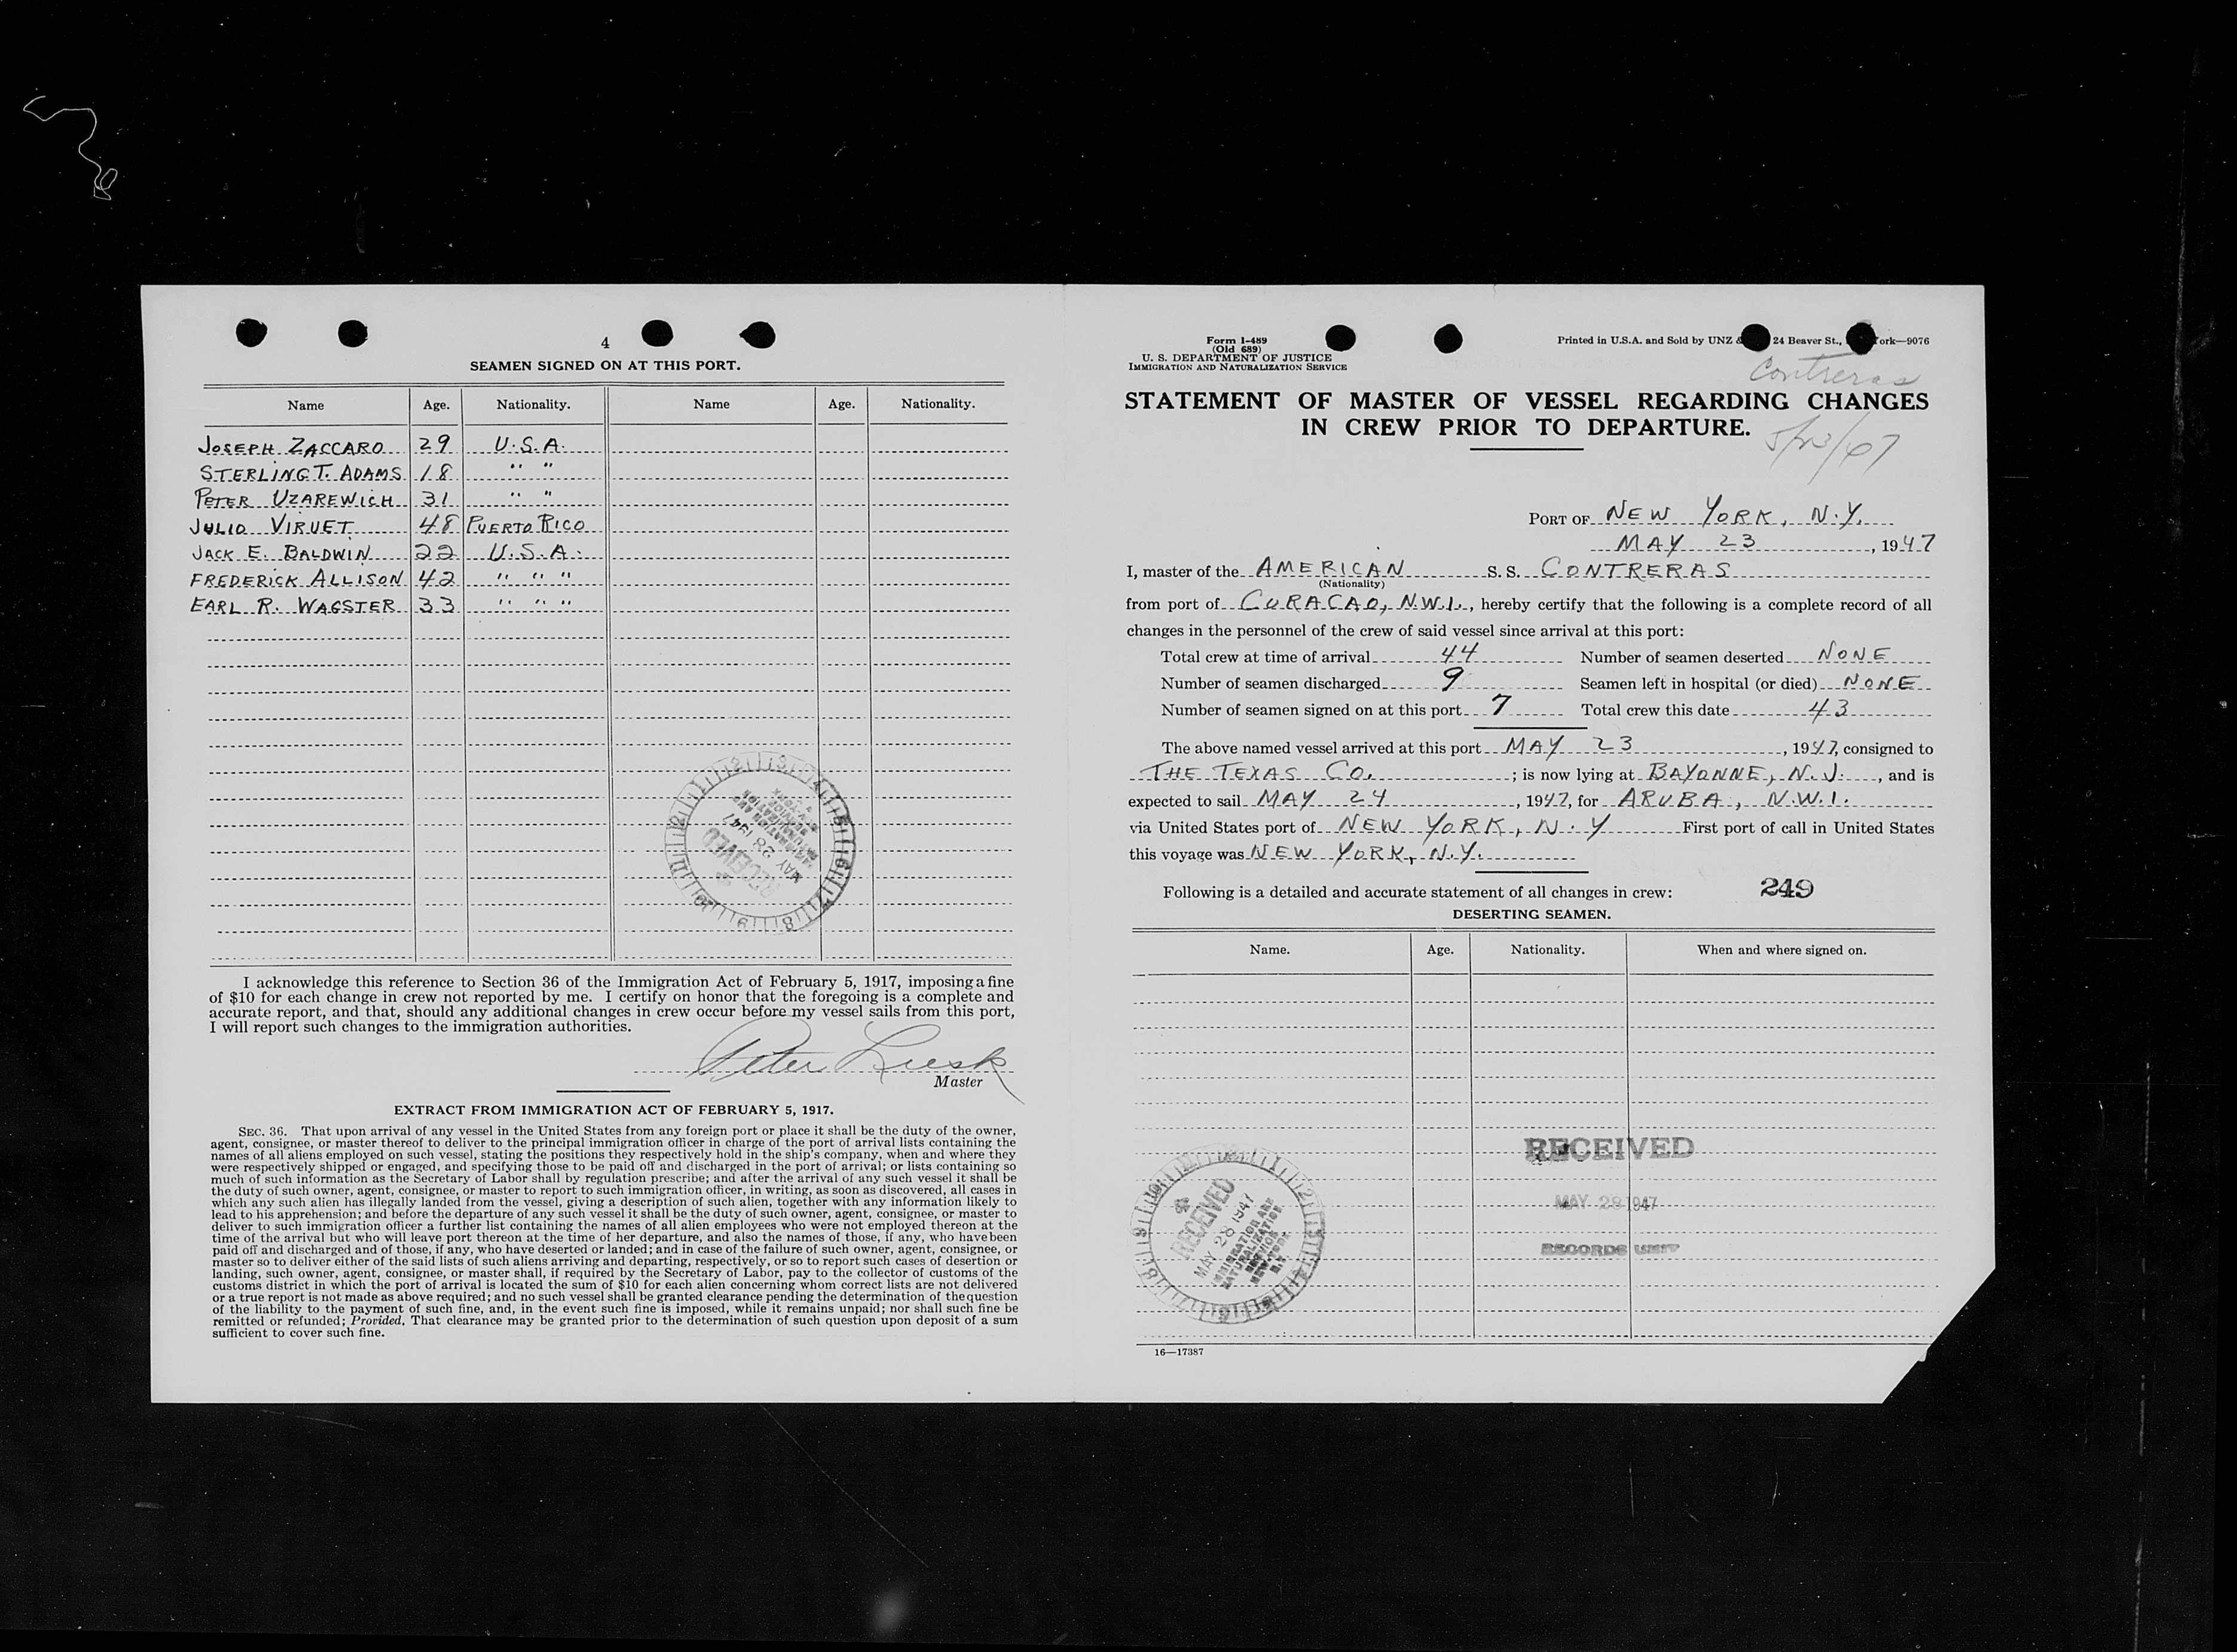 4
SEAMEN SIGNED ON AT THIS PORT.
Name Age. Nationality. Name Age. Nationality.
JOSEPH ZACCARO 29 U.S.A.
STERLING T. ADAMS 18 " "
PETER UZAREWICH 31 " "
JULIO VIRUET 48 PUERTO RICO
JACK E. BALDWIN 22 U.S.A.
FREDERICK ALLISON 42 " " "
EARL R. WAGSTER 33 " " "
RECEIVED
MAY 28 1947
I acknowledge this reference to Section 36 of the Immigration Act of February 5, 1917, imposing a fine
of $10 for each change in crew not reported by me. I certify on honor that the foregoing is a complete and
accurate report, and that, should any additional changes in crew occur before my vessel sails from this port,
I will report such changes to the immigration authorities.
Peter Lusk
Master
EXTRACT FROM IMMIGRATION ACT OF FEBRUARY 5, 1917.
SEC. 36. That upon arrival of any vessel in the United States from any foreign port or place it shall be the duty of the owner,
agent, consignee, or master thereof to deliver to the principal immigration officer in charge of the port of arrival lists containing the
names of all aliens employed on such vessel, stating the positions they respectively hold in the ship's company, when and where they
were respectively shipped or engaged, and specifying those to be paid off and discharged in the port of arrival; or lists containing so
much of such information as the Secretary of Labor shall by regulation prescribe; and after the arrival of any such vessel it shall be
the duty of such owner, agent, consignee, or master to report to such immigration officer, in writing, as soon as discovered, all cases in
which any such alien has illegally landed from the vessel, giving a description of such alien, together with any information likely to
lead to his apprehension; and before the departure of any such vessel it shall be the duty of such owner, agent, consignee, or master to
deliver to such immigration officer a further list containing the names of all alien employees who were not employed thereon at the
time of the arrival but who will leave port thereon at the time of her departure, and also the names of those, if any, who have been
paid off and discharged and of those, if any, who have deserted or landed; and in case of the failure of such owner, agent, consignee, or
master so to deliver either of the said lists of such aliens arriving and departing, respectively, or so to report such cases of desertion or
landing, such owner, agent, consignee, or master shall, if required by the Secretary of Labor, pay to the collector of customs of the
customs district in which the port of arrival is located the sum of $10 for each alien concerning whom correct lists are not delivered
or a true report is not made as above required; and no such vessel shall be granted clearance pending the determination of the question
of the liability to the payment of such fine, and, in the event such fine is imposed, while it remains unpaid; nor shall such fine be
remitted or refunded; Provided, That clearance may be granted prior to the determination of such question upon deposit of a sum
sufficient to cover such fine.
Form I-489
(Old 689)
U. S. DEPARTMENT OF JUSTICE
IMMIGRATION AND NATURALIZATION SERVICE
Printed in U.S.A. and Sold by UNZ & 24 Beaver St., ork—9076
Contreras
STATEMENT OF MASTER OF VESSEL REGARDING CHANGES
IN CREW PRIOR TO DEPARTURE.
5/23/47
PORT OF NEW YORK, N.Y.
MAY 23, 1947
I, master of the AMERICAN S. S. CONTRERAS
(Nationality)
from port of CURACAO, N.W.I., hereby certify that the following is a complete record of all
changes in the personnel of the crew of said vessel since arrival at this port:
Total crew at time of arrival 44 Number of seamen deserted NONE
Number of seamen discharged 9 Seamen left in hospital (or died) NONE
Number of seamen signed on at this port 7 Total crew this date 43
The above named vessel arrived at this port MAY 23, 1947, consigned to
THE TEXAS CO.; is now lying at BAYONNE, N.J., and is
expected to sail MAY 24, 1947, for ARUBA, N.W.I.
via United States port of NEW YORK, N.Y First port of call in United States
this voyage was NEW YORK, N.Y.
Following is a detailed and accurate statement of all changes in crew: 249
DESERTING SEAMEN.
Name. Age. Nationality. When and where signed on.
RECEIVED
MAY 28 1947
RECORDS UNIT
RECEIVED
MAY 28 1947
IMMIGRATION AND
NATURALIZATION
SERVICE
NEW YORK
N.Y.
16—17387